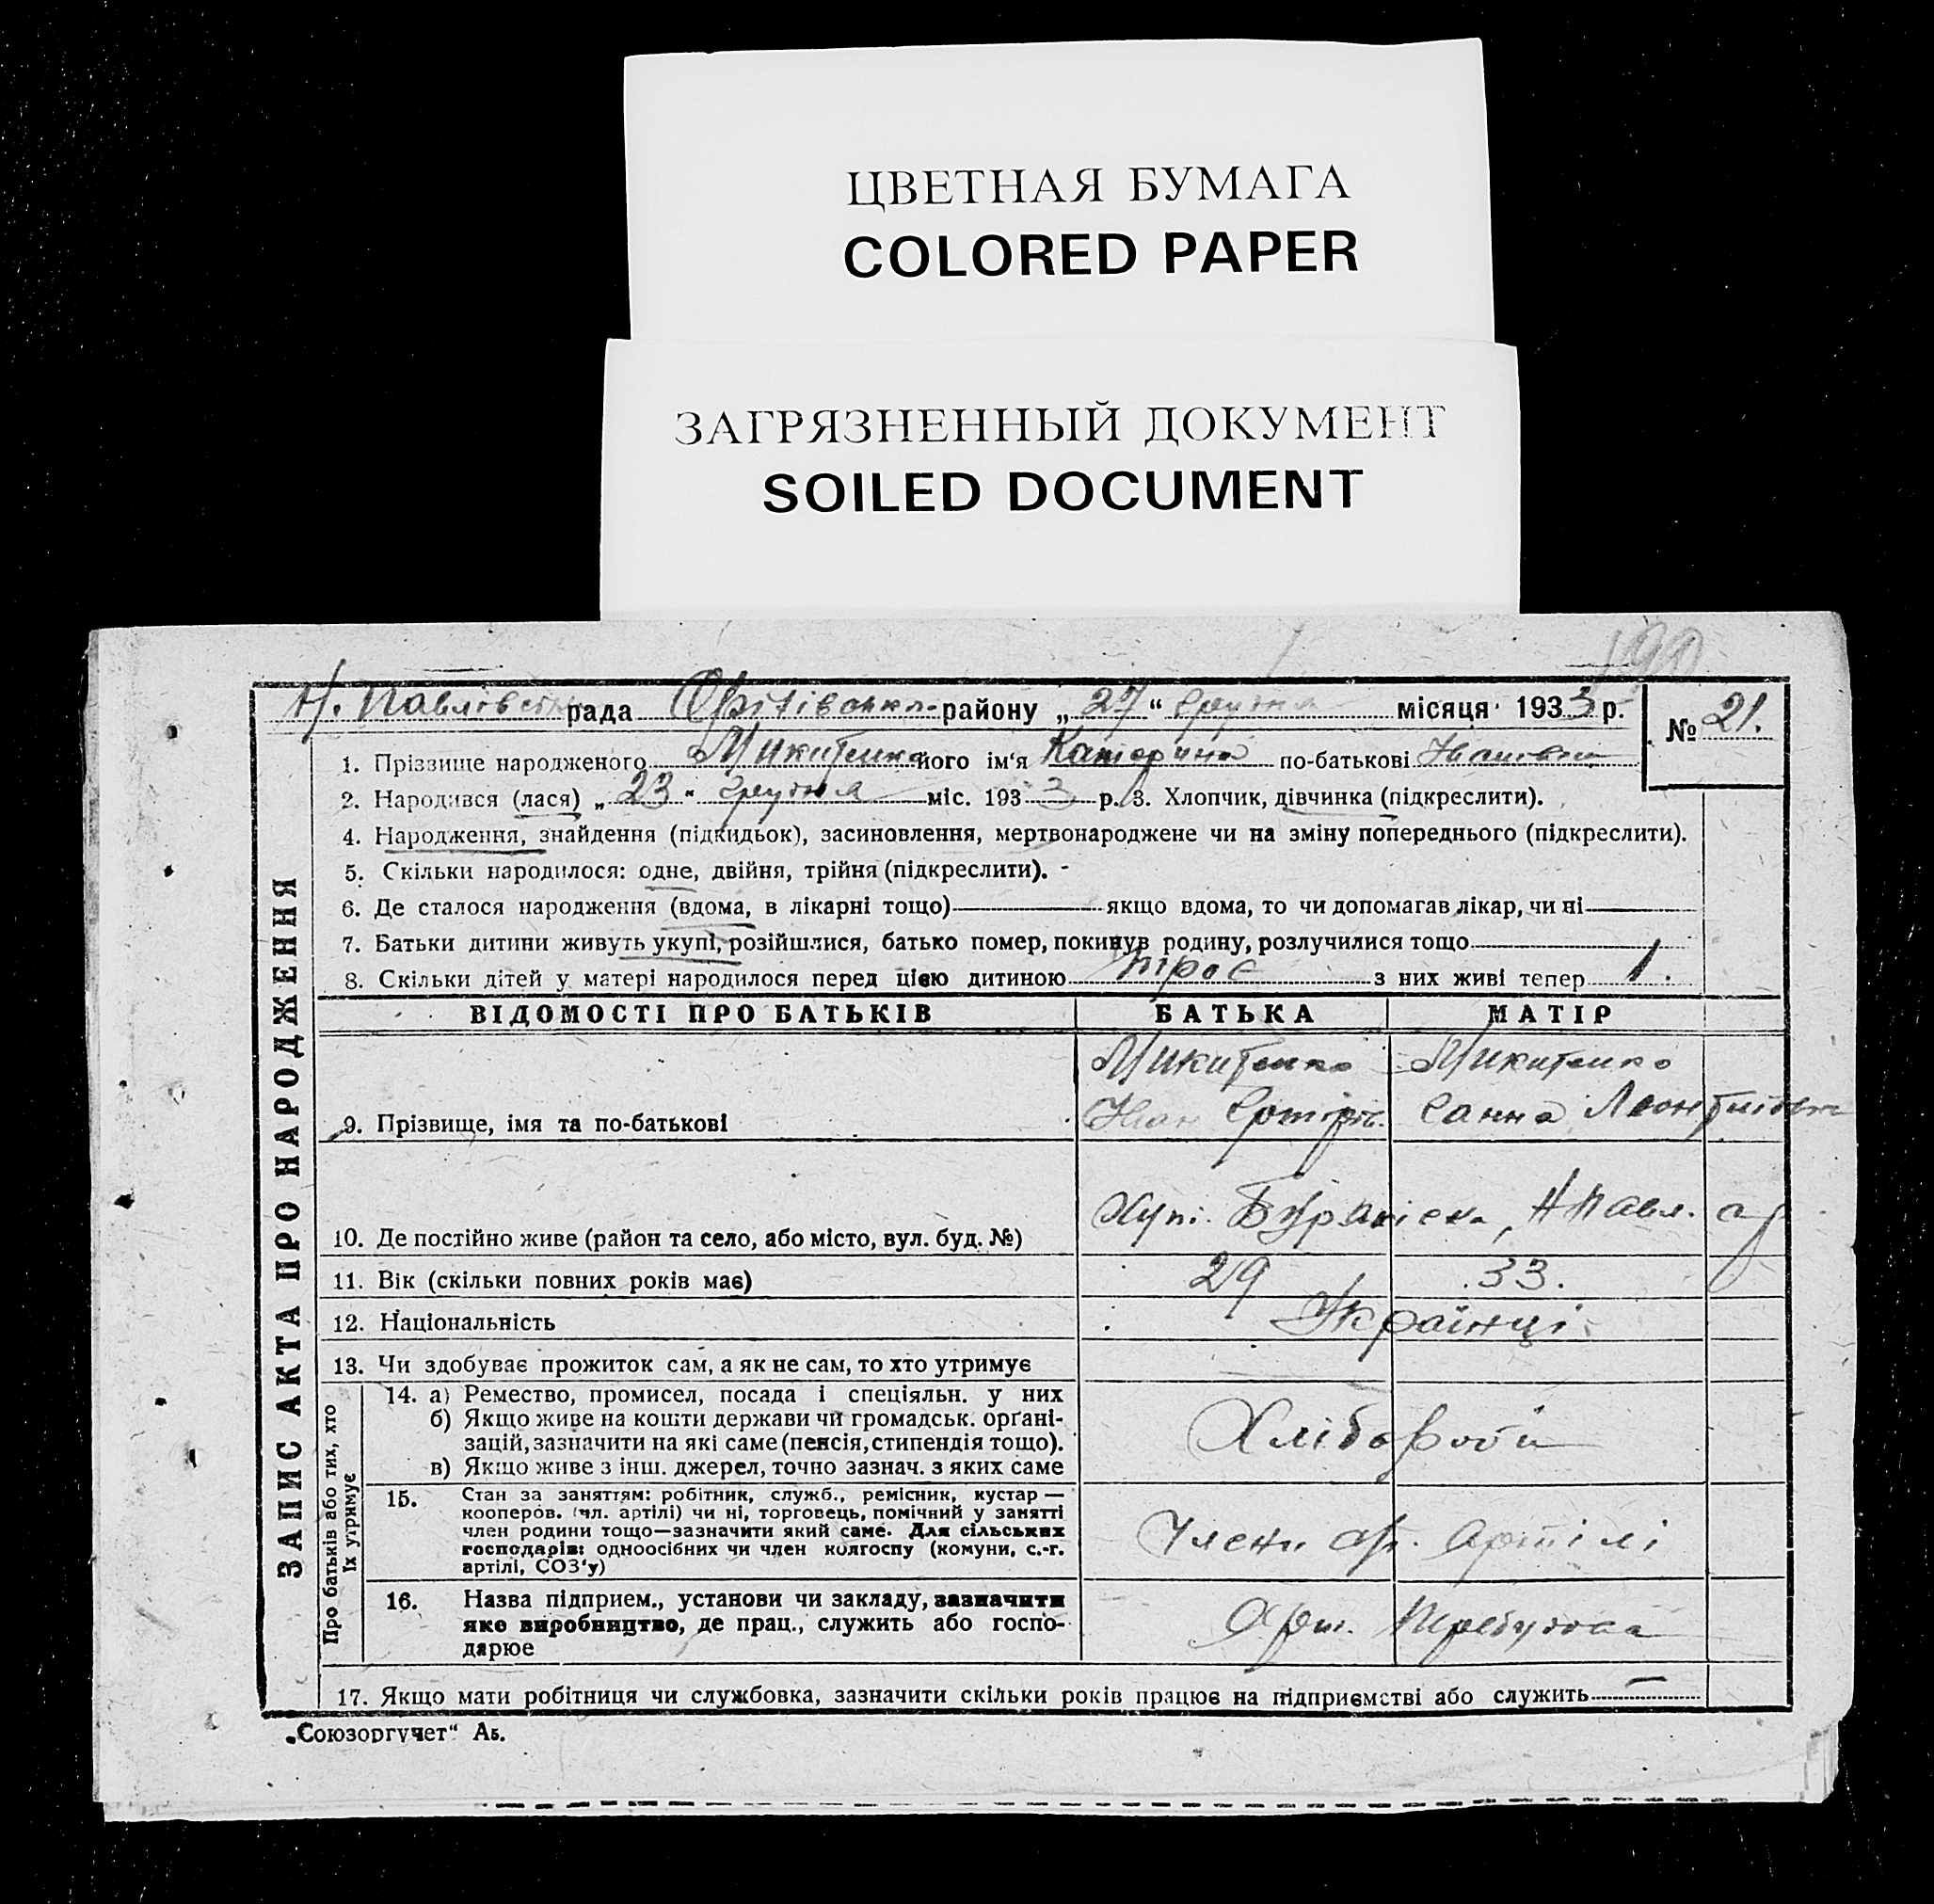 ЦВЕТНАЯ БУМАГА
COLORED PAPER
ЗАГРЯЗНЕННЫЙ ДОКУМЕНТ
SOILED DOCUMENT
190
Н. Павлівська рада району „27“ грудня місяця 1933 р.
№ 21.
1. Прізвище народженого Микитенко його ім'я Катерина по-батькові Іванівна
2. Народився (лася) „23“ грудня міс. 1933 р. 3. Хлопчик, дівчинка (підкреслити).
4. Народження, знайдення (підкидьок), засиновлення, мертвонароджене чи на зміну попереднього (підкреслити).
5. Скільки народилося: одне, двійня, трійня (підкреслити).
6. Де сталося народження (вдома, в лікарні тощо) якщо вдома, то чи допомагав лікар, чи ні
7. Батьки дитини живуть укупі, розійшлися, батько помер, покинув родину, розлучилися тощо
8. Скільки дітей у матері народилося перед цією дитиною троє з них живі тепер 1.
ЗАПИС АКТА ПРО НАРОДЖЕННЯ
ВІДОМОСТІ ПРО БАТЬКІВ БАТЬКА МАТІР
Микитенко Микитенко
9. Прізвище, імя та по-батькові Іван Ганна
10. Де постійно живе (район та село, або місто, вул. буд. №) Н Павл.
11. Вік (скільки повних років має) 29 33.
12. Національність Українці
13. Чи здобуває прожиток сам, а як не сам, то хто утримує
Про батьків або тих, хто їх утримує
14. а) Ремество, промисел, посада і спеціяльн. у них
б) Якщо живе на кошти держави чи громадськ. орґані-
зацій, зазначити на які саме (пенсія, стипендія тощо).
в) Якщо живе з інш. джерел, точно зазнач. з яких саме
Хлібороби
15. Стан за заняттям: робітник, служб., ремісник, кустар —
кооперов. (чл. артілі) чи ні, торговець, помічний у занятті
член родини тощо—зазначити який саме. Для сільських
господарів: одноосібних чи член колгоспу (комуни, с.-г.
артілі, СОЗ'у)
Члени артілі
16. Назва підприєм., установи чи закладу, зазначити
яке виробництво, де прац., служить або госпо-
дарює
Арт. Перебудова
17. Якщо мати робітниця чи службовка, зазначити скільки років працює на підприємстві або служить —
„Союзоргучет“ Аб.